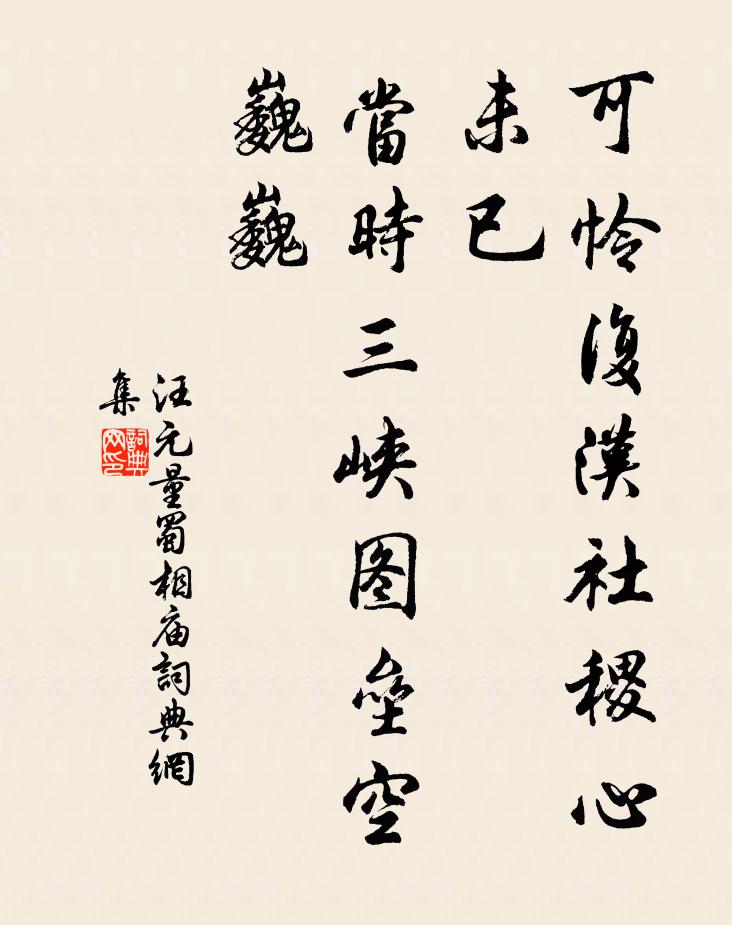 可怜復漢社稷心
未已
當時三峡图垒空
巍巍
汪元量蜀相庙詞典網
集
詞典
网印